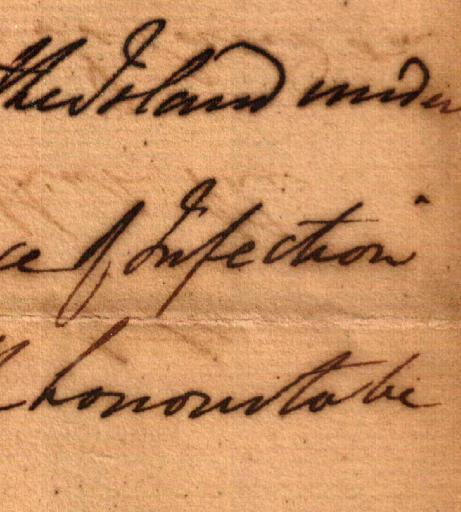 the Island under
ce of Infection
honour to be